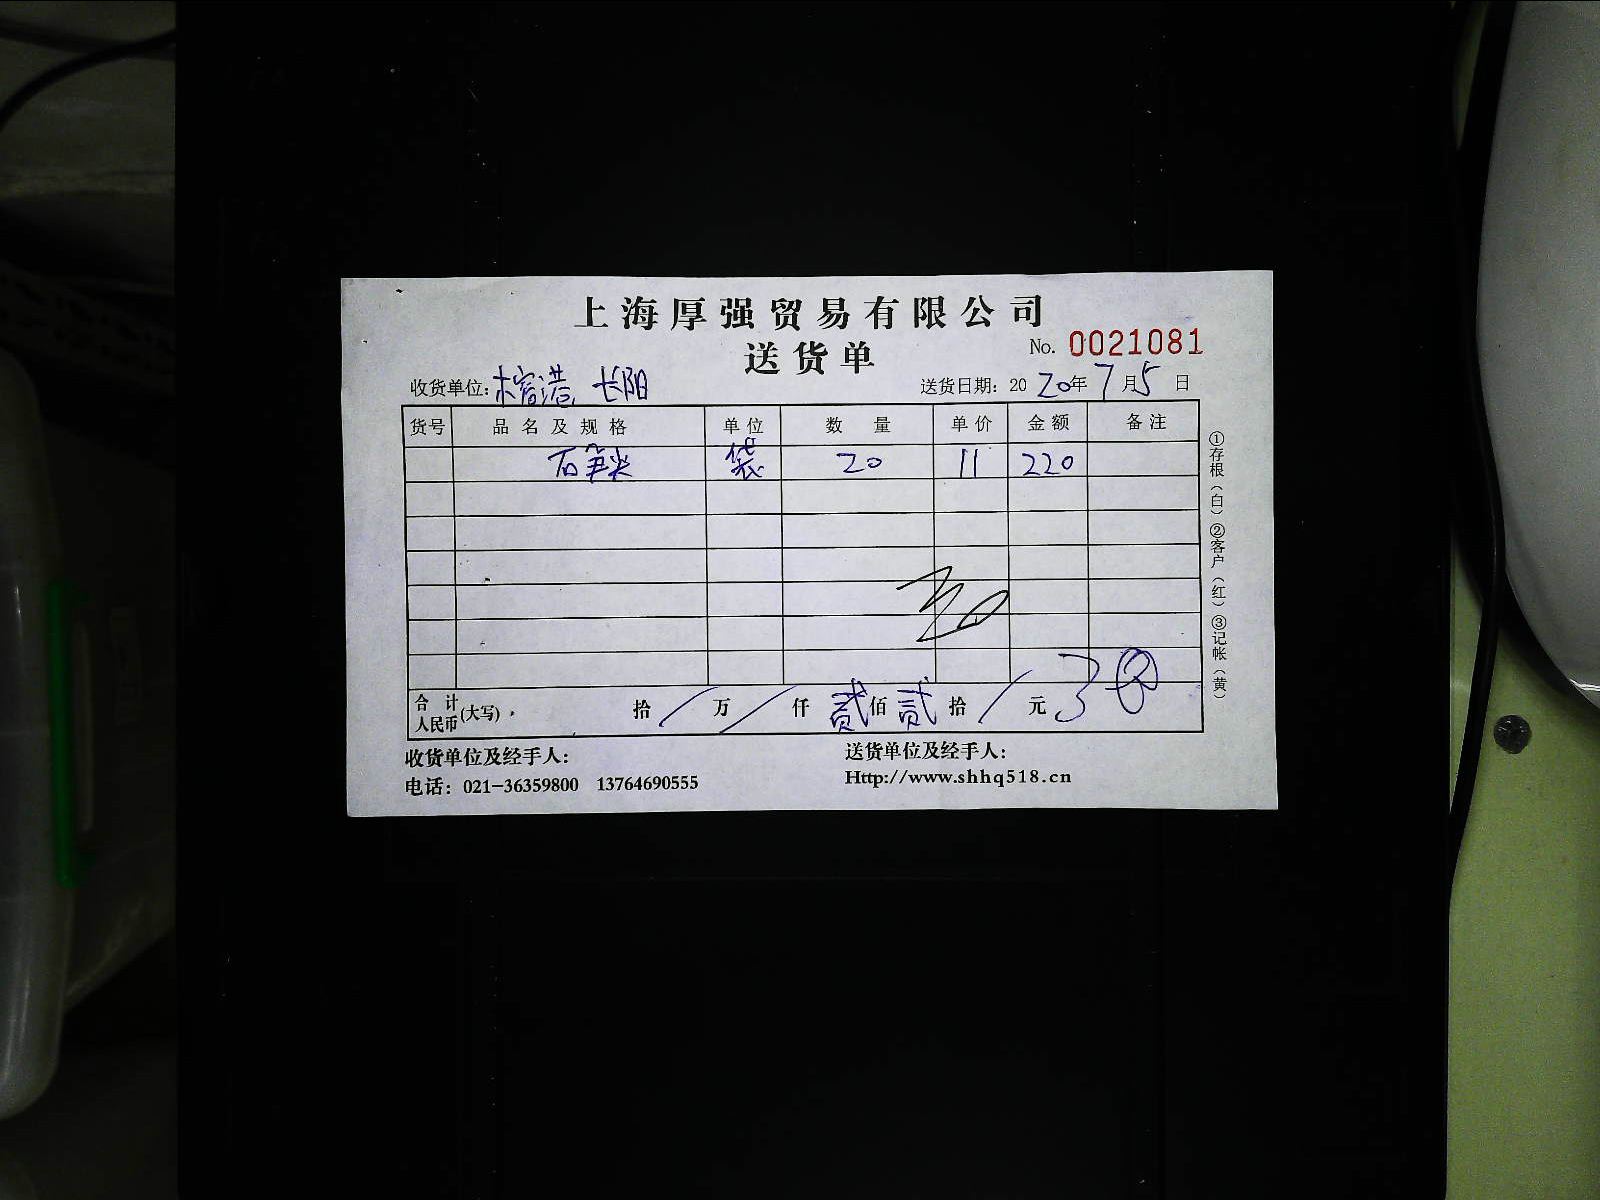 上海厚强贸易有限公司
送货单
No. 0021081
收货单位: 榕港 长阳
送货日期: 2020年7月5日
货号 品名及规格 单位 数量 单价 金额 备注
石笋尖 袋 20 11 220
合计人民币(大写) 拾/万/仟贰佰贰拾/元
收货单位及经手人:
送货单位及经手人:
电话: 021-36359800 13764690555
Http://www.shhq518.cn
①存根(白)②客户(红)③记帐(黄)